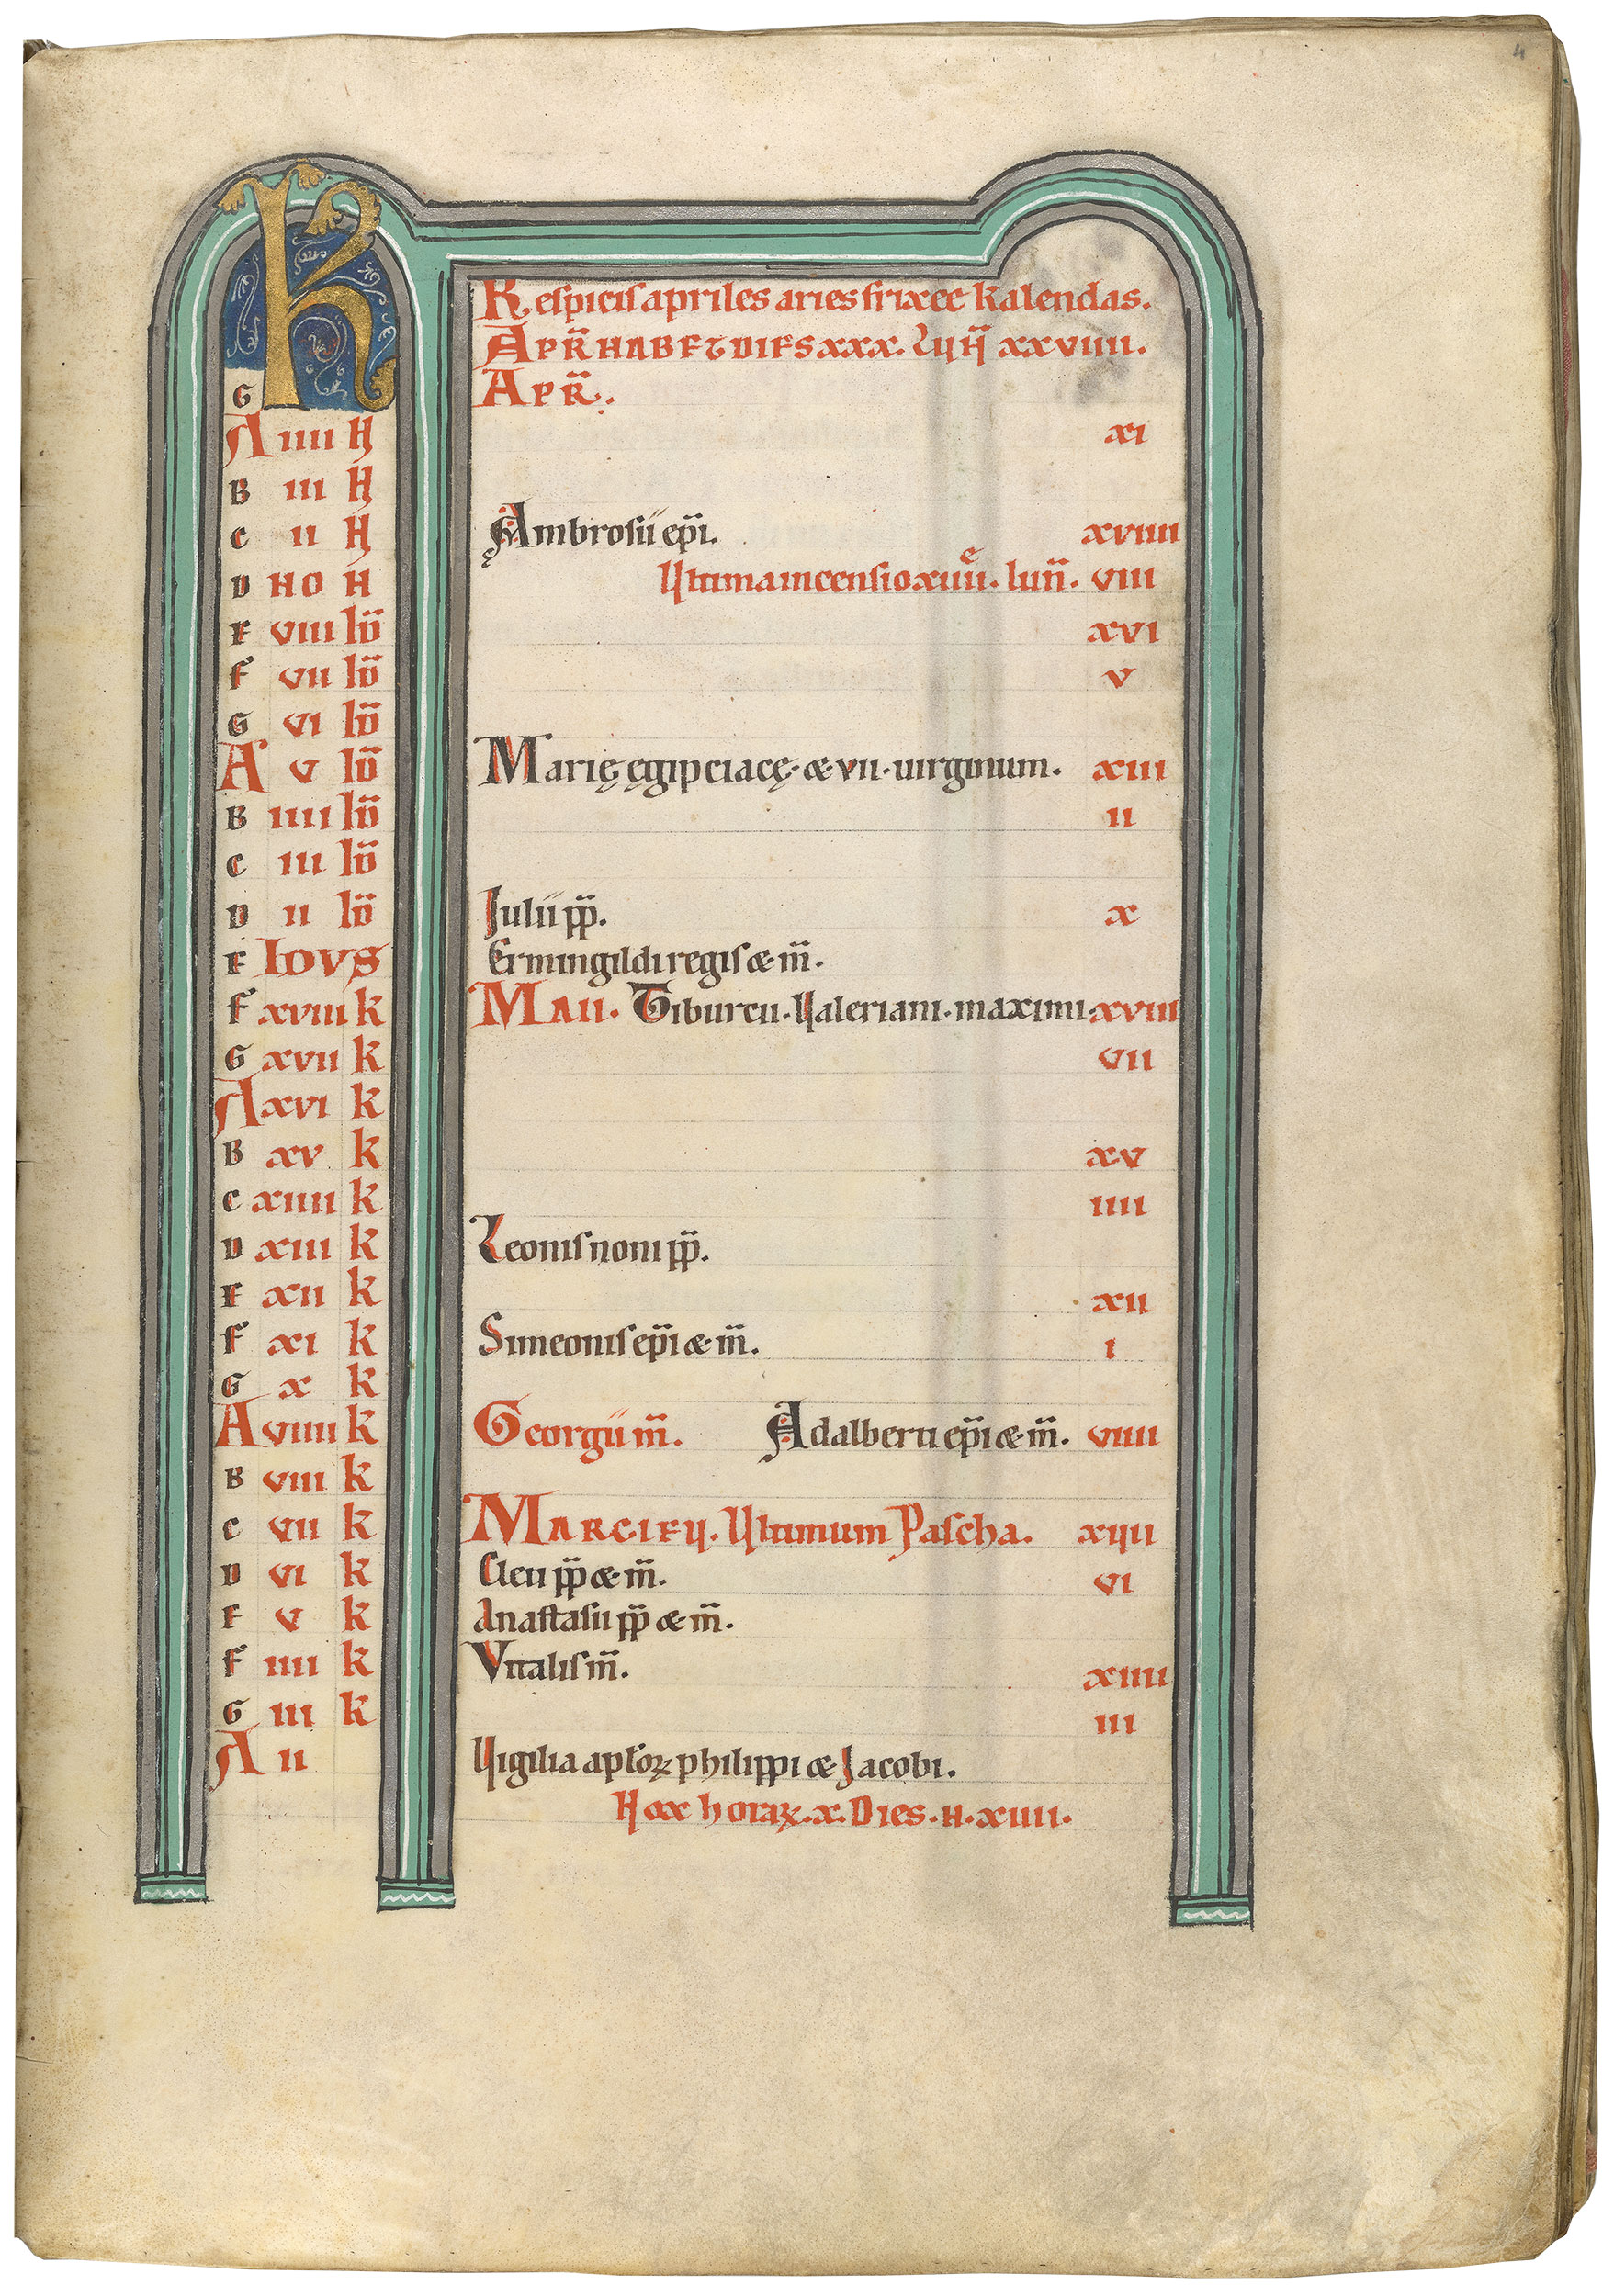 4
K
Respicis apriles aries frixee kalendas.
APR̅ HABET DIES xxx. LUN̅ xxviiii.
G APR̅.
A iiii N xi
B iii N
C ii N Ambrosii ep̅i. xviiii
D NO N Ultima incensio xiiii.e lun̅. viii
E viii Id̅ xvi
F vii Id̅ v
G vi Id̅
A v Id̅ Marię ęgipciacę. & vii. uirginum. xiii
B iiii Id̅ ii
C iii Id̅
D ii Id̅ Julii pp̅. x
E IDVS Ermingildi regis & m̅.
F xviii k MAII. Tiburcii. Valeriani. maximi. xviii
G xvii k vii
A xvi k
B xv k xv
C xiiii k iiii
D xiii k Leonis noni pp̅.
E xii k xii
F xi k Simeonis ep̅i & m̅. i
G x k
A viiii k Georgii m̅. Adalberti ep̅i & m̅. viiii
B viii k
C vii k MARCI EV̅. Ultimum Pascha. xvii
D vi k Cleti pp̅ & m̅. vi
E v k Anastasii pp̅ & m̅.
F iiii k Vitalis m̅. xiiii
G iii k iii
A ii Vigilia aplo̅ꝝ philippi & Jacobi.
Nox horaꝝ. x. Dies. H. xiiii.